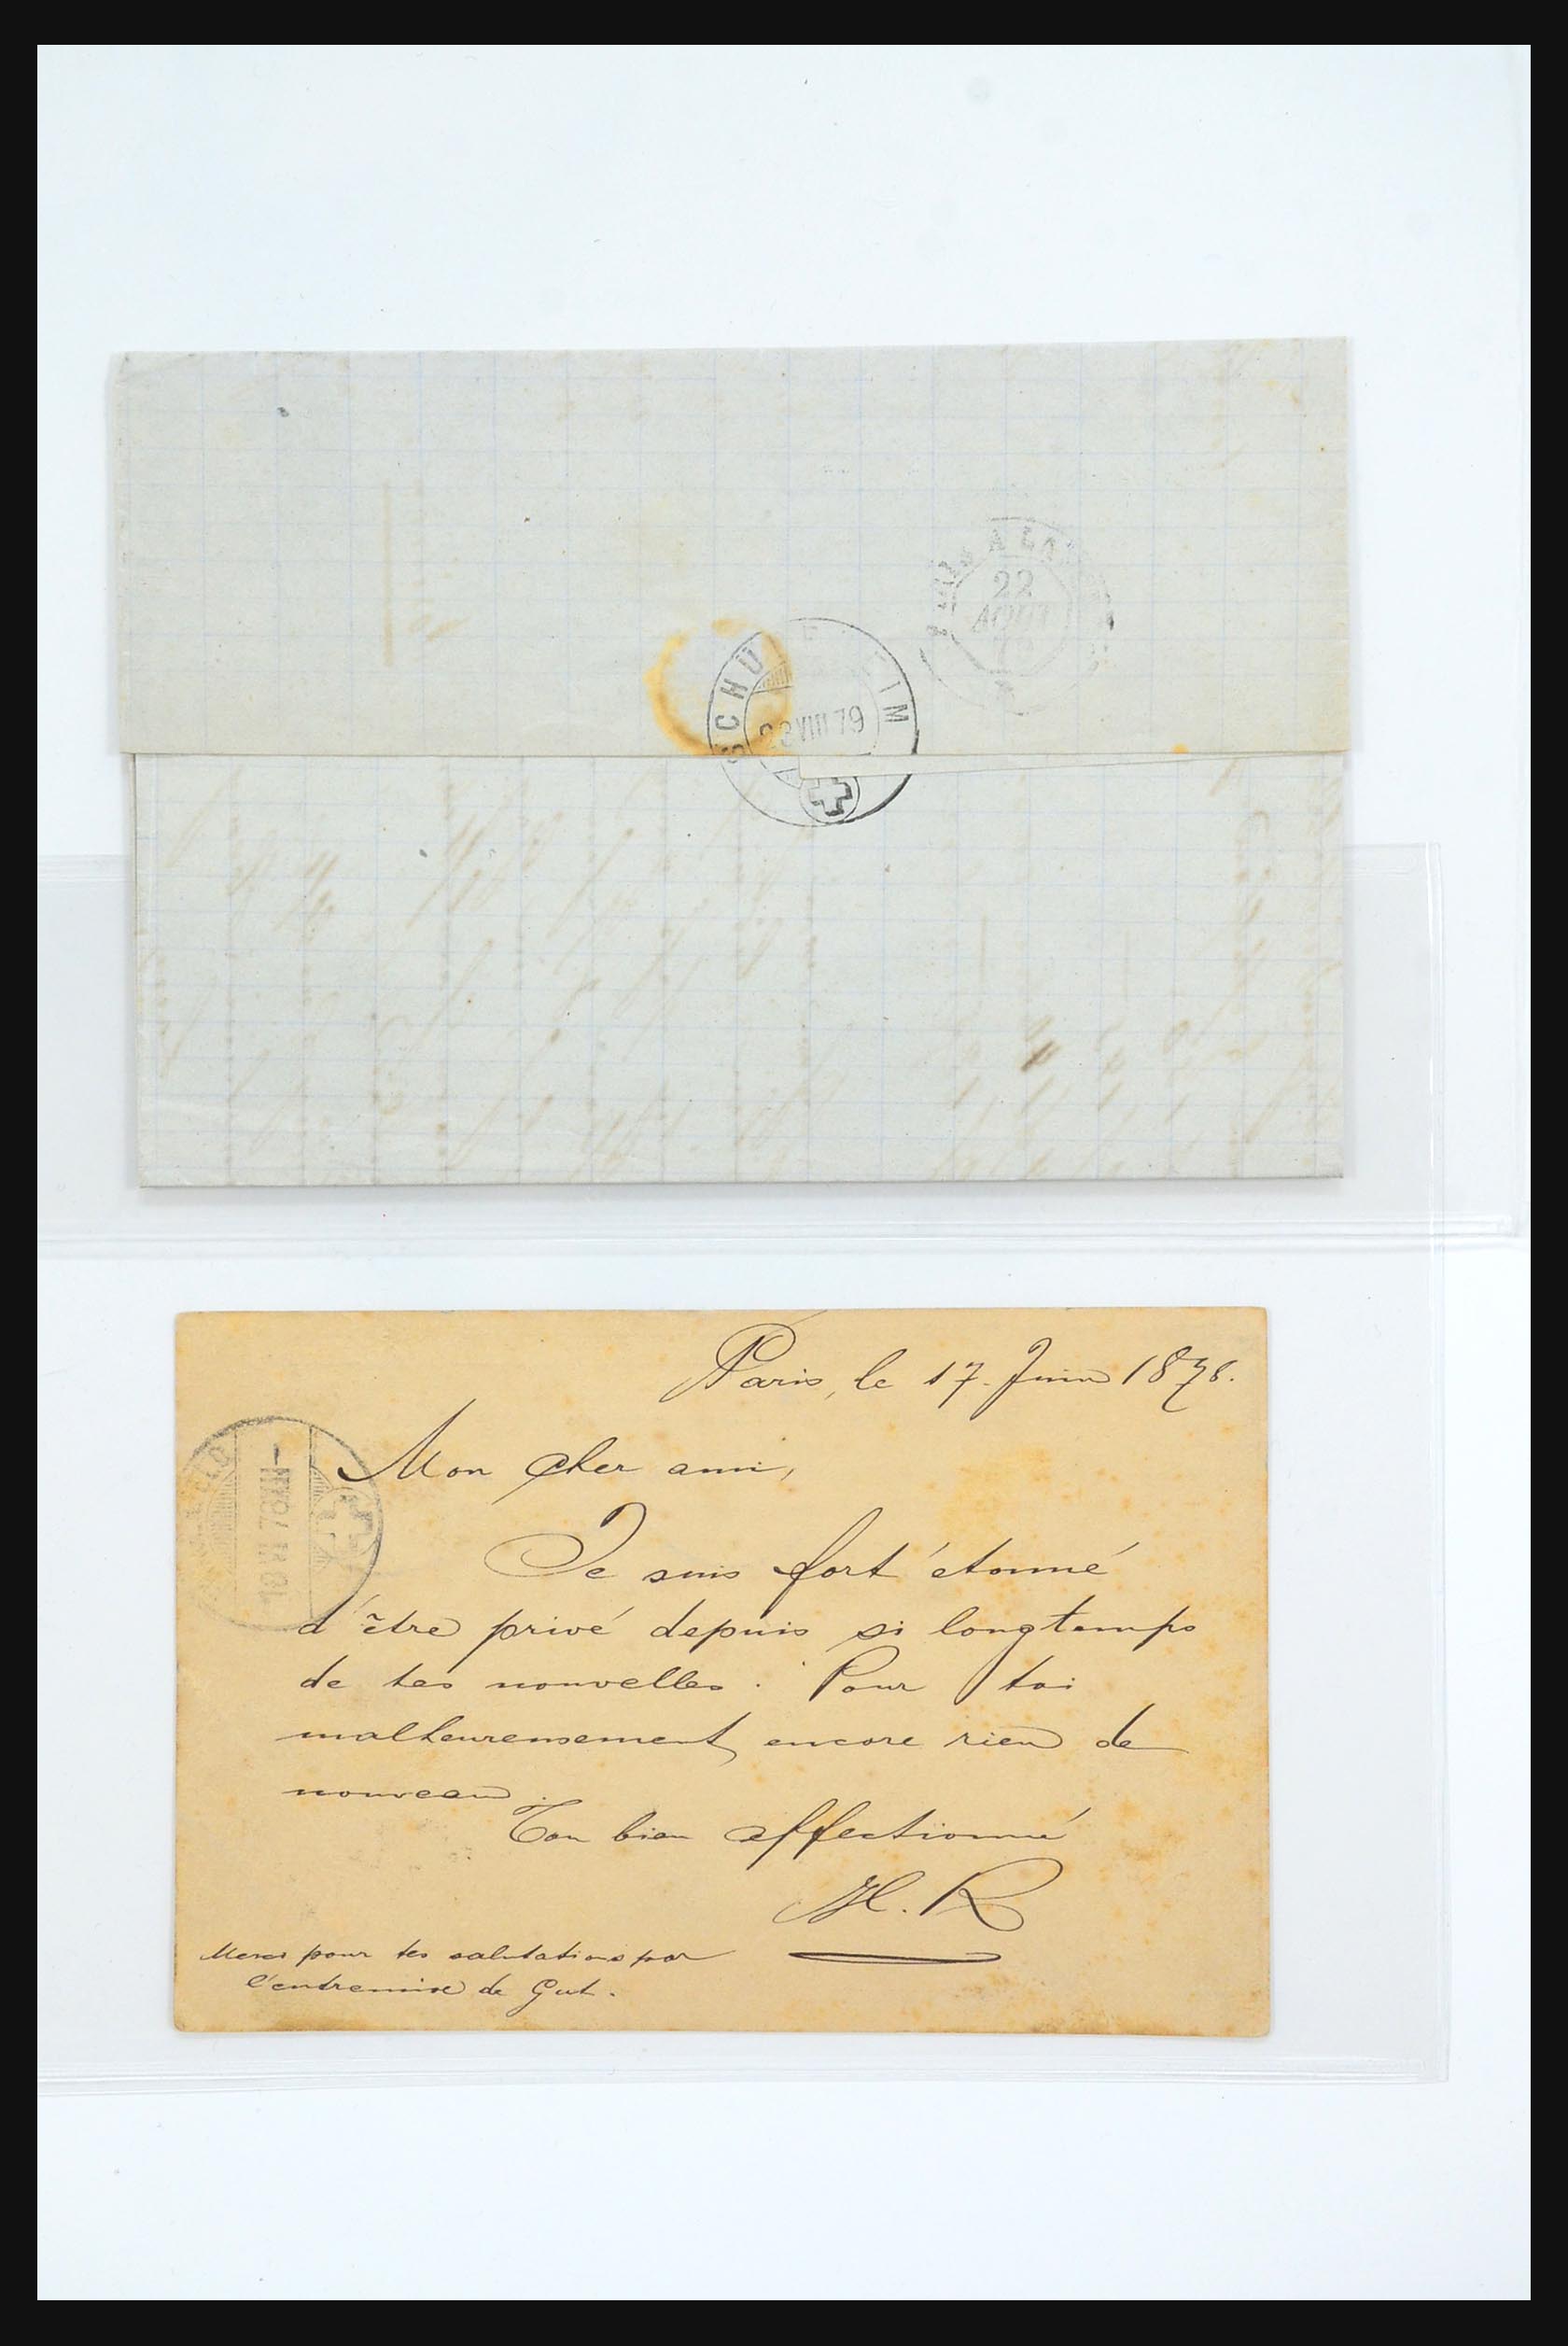 22
AOUT
79
23 VIII 79
Paris, le 17. Juin 1878.
Mon cher ami,
Je suis fort étonné
d'être privé depuis si longtemps
de tes nouvelles. Pour toi
malheureusement encore rien de
nouveau.
Ton bien affectionné
H. R
Merci pour tes salutations par
l'entremise de Gut.